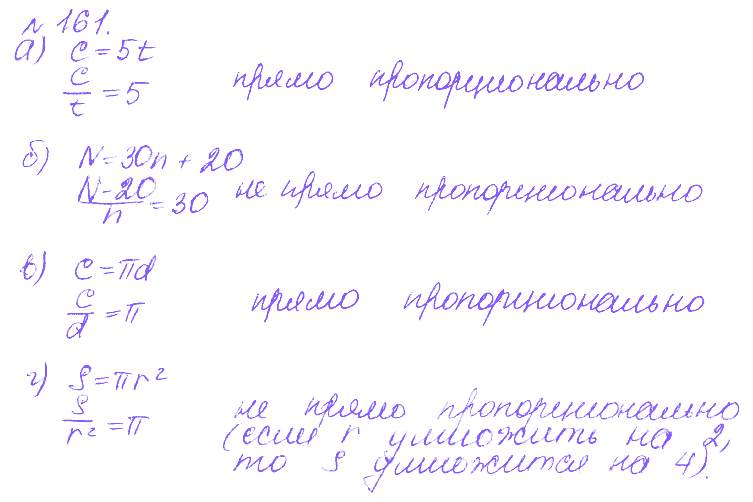 № 161.
а) c = 5t
c/t = 5 прямо пропорционально
б) N = 30n + 20
(N-20)/n = 30 не прямо пропорционально
в) C = πd
C/d = π прямо пропорционально
г) S = πr²
S/r² = π не прямо пропорционально
(если r умножить на 2,
то S умножится на 4).